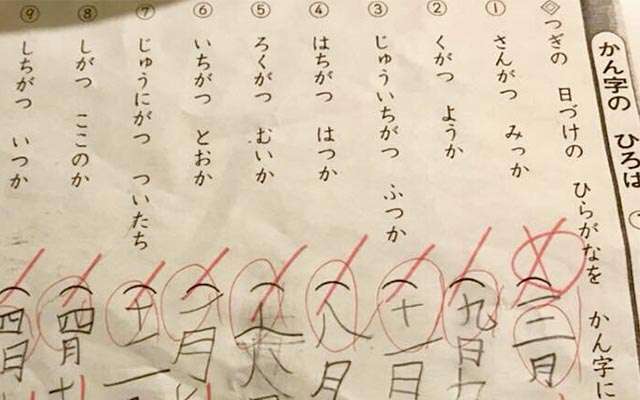 かん字の ひろば
◇つぎの 日づけの ひらがなを かん字に
① さんがつ みっか (三月
② くがつ ようか (九日九
③ じゅういちがつ ふつか (十一日
④ はちがつ はつか (八月
⑤ ろくがつ むいか (
⑥ いちがつ とおか (一月
⑦ じゅうにがつ ついたち (十一
⑧ しがつ ここのか (四月十
⑨ しちがつ いつか (四月